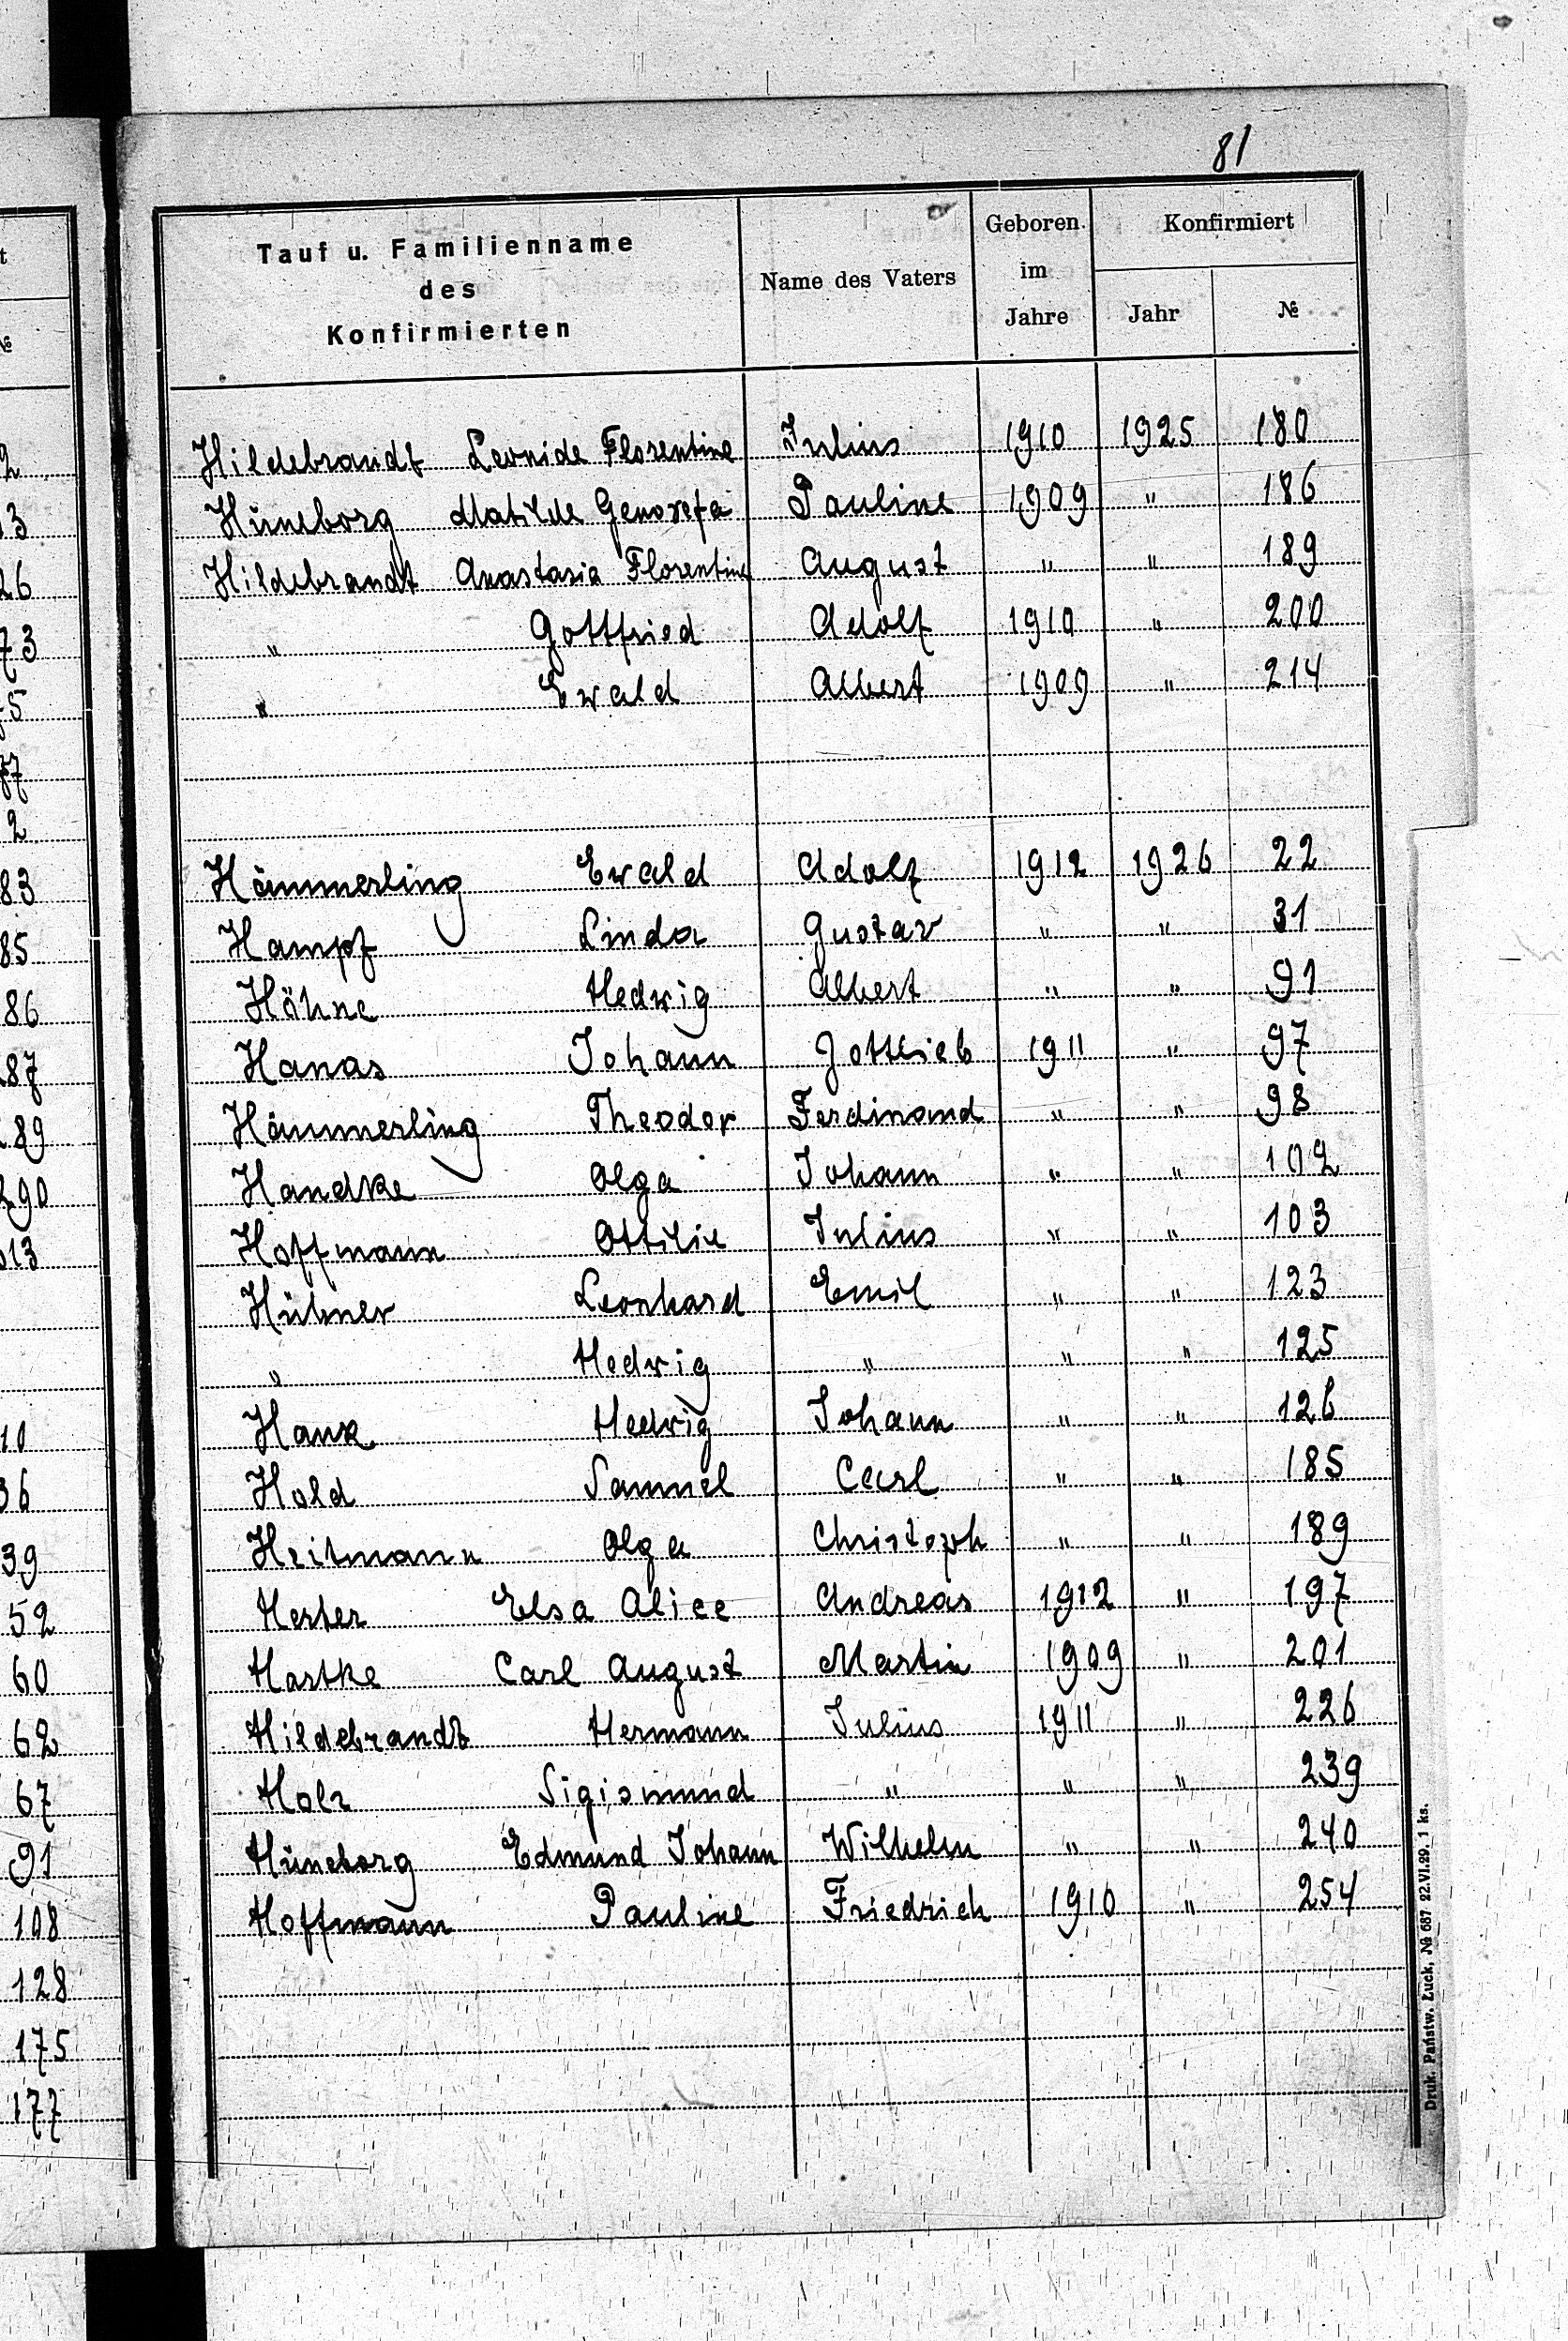 81
Tauf u. Familienname des Konfirmierten | Name des Vaters | Geboren im Jahre | Konfirmiert Jahr | №
Hildebrandt Leonide Florentine Julius 1910 1925 180
Hüneborg Matilde Genovefa Pauline 1909 " 186
Hildebrandt Anastasia Florentine August " " 189
" Gottfried Adolf 1910 " 200
" Ewald Albert 1909 " 214
Hämmerling Ewald Adolf 1912 1926 22
Hampf Linda Gustav " " 31
Höhne Hedwig Albert " " 91
Hanas Johann Gottlieb 1911 " 97
Hämmerling Theodor Ferdinand " " 98
Handke Olga Johann " " 102
Hoffmann Ottilie Julius " " 103
Hübner Leonhard Emil " " 123
" Hedwig " " " 125
Hank Hedwig Johann " " 126
Hold Samuel Carl " " 185
Heitmann Olga Christoph " " 189
Herter Elsa Alice Andreas 1912 " 197
Hartke Carl August Martin 1909 " 201
Hildebrandt Hermann Julius 1911 " 226
Holz Sigismund " " " 239
Hüneborg Edmund Johann Wilhelm " " 240
Hoffmann Pauline Friedrich 1910 " 254
Druk. Państw. Łuck, № 687 22.VI.29. 1 ks.